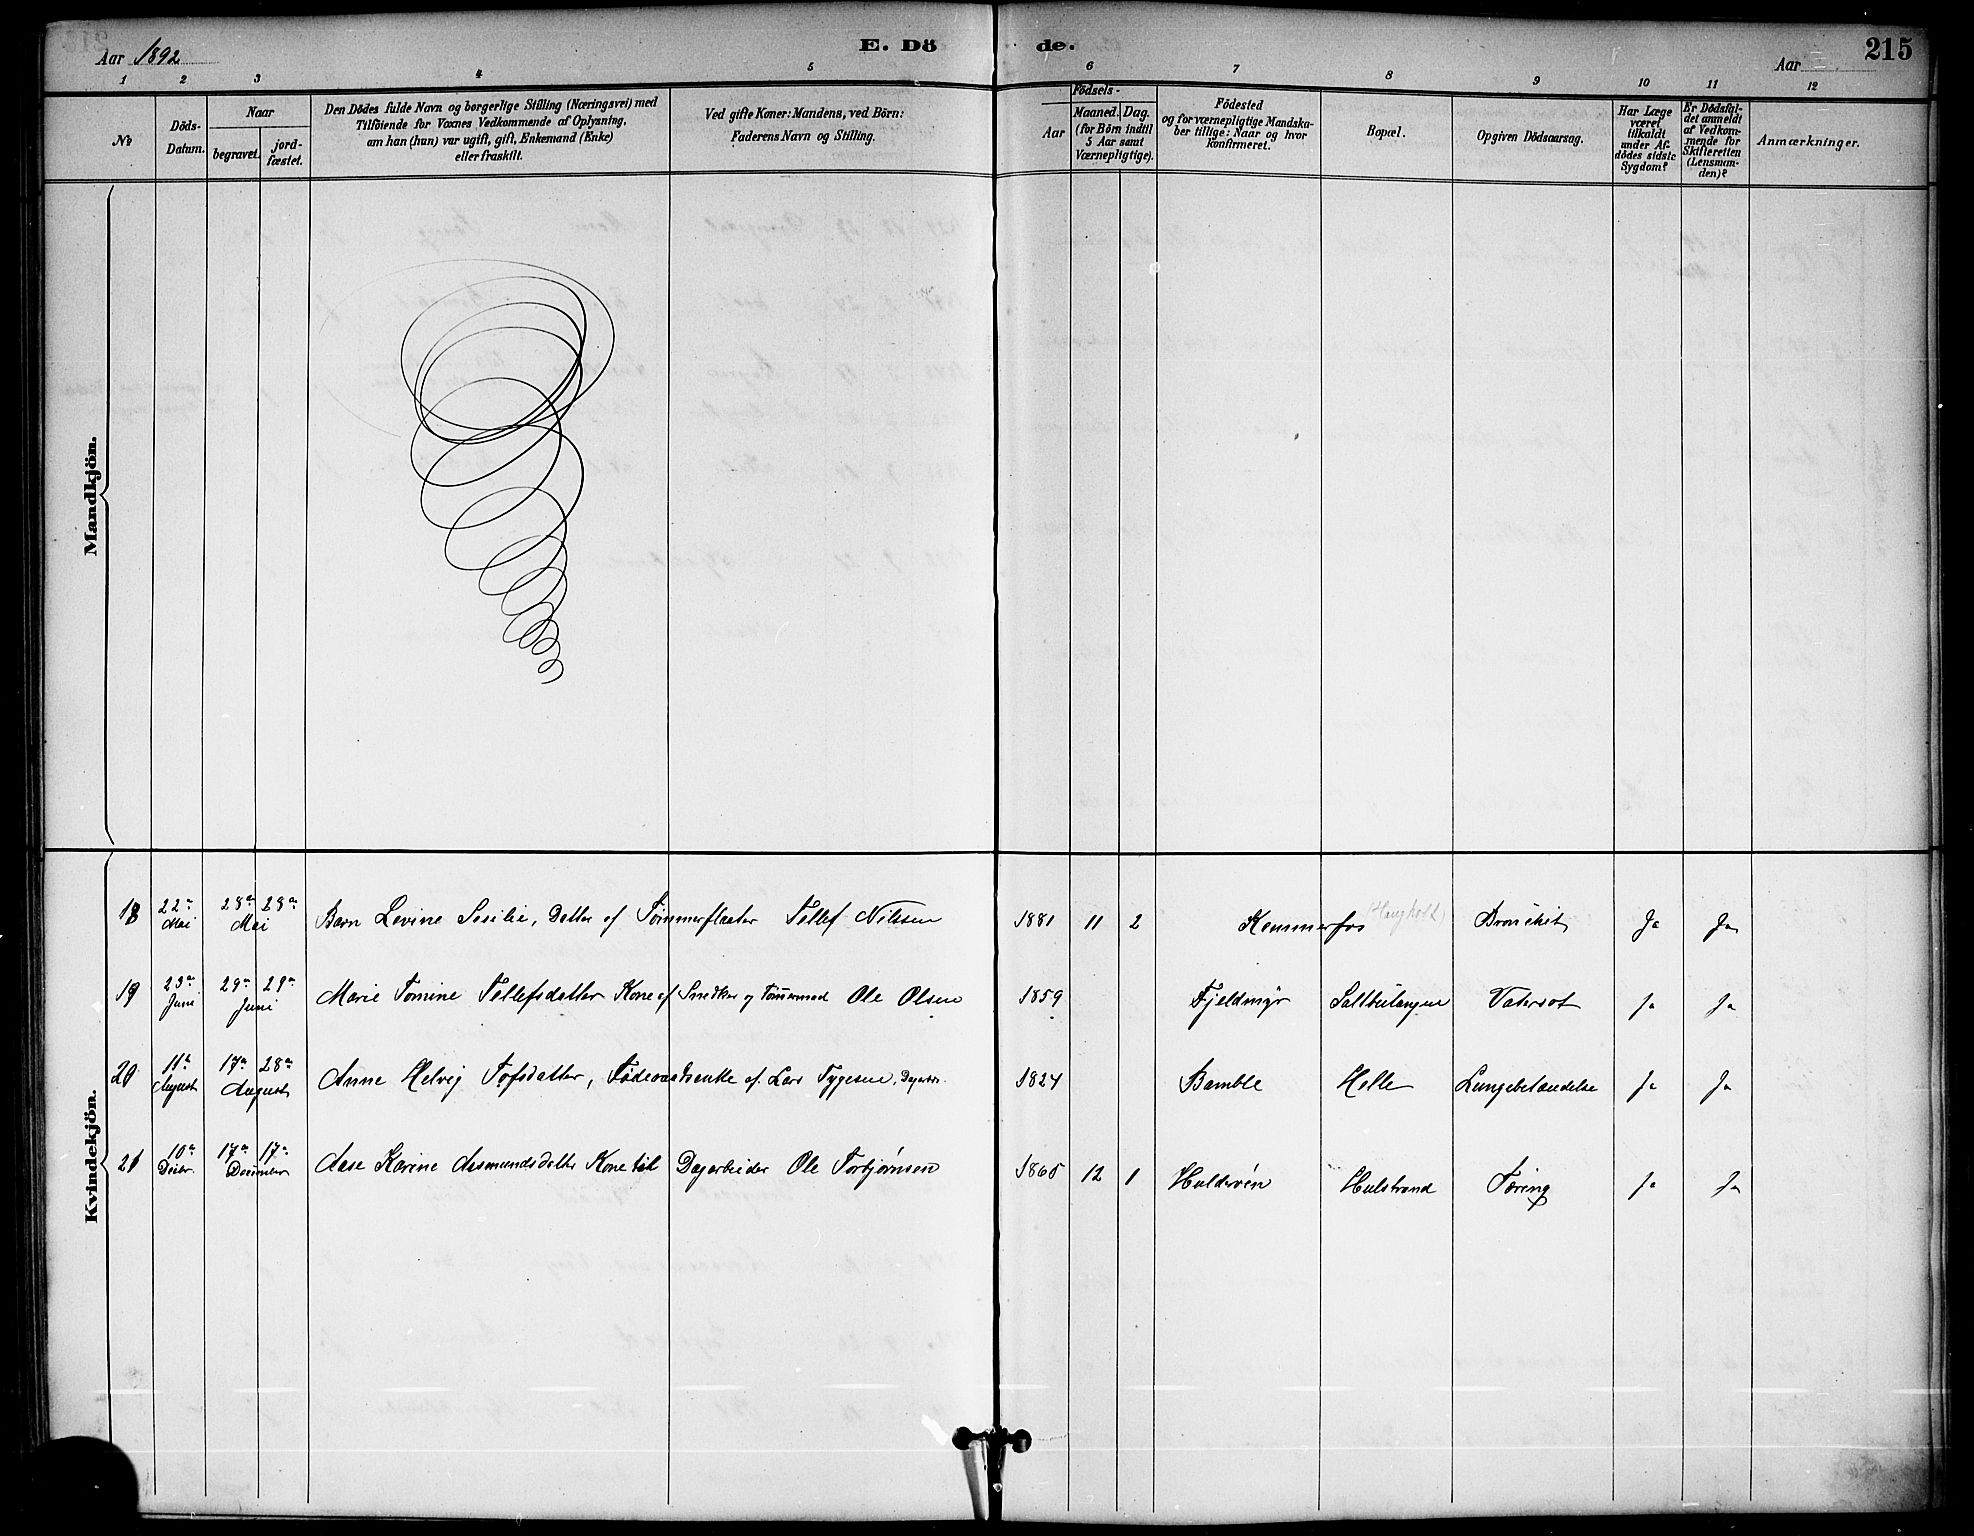 Aar 1892
E. Dö
de.
Aar
215
1 2 3 4 5 6 7 8 9 10 11 12
№
Döds-
Datum.
Naar
begravet.
jord-
fæstet.
Den Dödes fulde Navn og borgerlige Stilling (Næringsvei) med
Tilföiende for Voxnes Vedkommende af Oplysning,
om han (hun) var ugift, gift, Enkemand (Enke)
eller fraskilt.
Ved gifte Koner: Mandens, ved Börn:
Faderens Navn og Stilling.
Födsels-
Aar
Maaned.
Dag.
(for Börn indtil
5 Aar samt
Værnepligtige).
Födested
og for værnepligtige Mandska-
ber tillige: Naar og hvor
konfirmeret.
Bopæl.
Opgiven Dödsaarsag.
Har Læge
været
tilkaldt
under Af-
dödes sidste
Sygdom?
Er Dödsfal-
det anmeldt
af Vedkom-
mende for
Skifteretten
(Lensman-
den)?
Anmærkninger.
Mandkjön.
Kvindekjön.
18 22de Mai 28de 28de Mai Barn Levine Sesilie, Datter af Tømmerflaater Tellef Nilsen 1881 11 2 Kammerfos Bronchit Ja Ja
19 23de Juni 29de 29de Juni Marie Tomine Tellefsdatter Kone af Snedker og Tømmermand Ole Olsen 1859 Fjeldmyr Saltbutangen Vatersot Ja Ja
20 11te August 17de 28de August Anne Helvig Tofsdatter, Føderaadsenke af Lars Tygesen, Dagarb. 1824 Bamble Helle Lungebetændelse Ja Ja
21 10de Decbr. 17de 17de December Aase Karine Aasmundsdatter Kone til Dagarbeider Ole Torbjørnsen 1865 12 1 Huldrøen Hulstrand Tæring Ja Ja